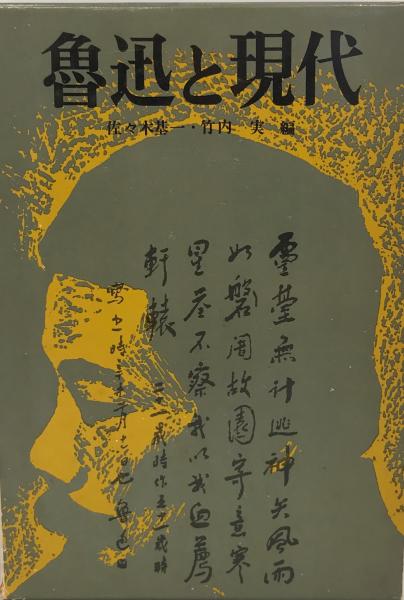 魯迅と現代
佐々木基一・竹内 実 編
靈臺無計逃神矢風雨
如磐闇故園寄意寒
星荃不察我以我血薦
軒轅 二十一歳時作五十一歳時
寫之時辛未二月十六日也 魯迅